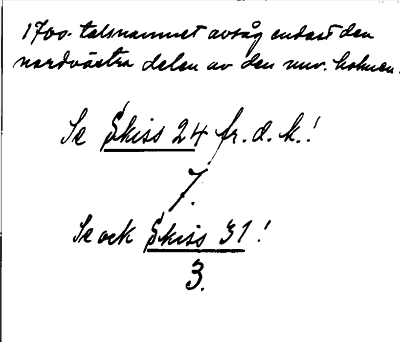 1700-talsnamnet avsåg endast den
nordvästra delen av den nuv. holmen.
Se Skiss 24 fr. d. k.!
7.
Se ock Skiss 31!
3.